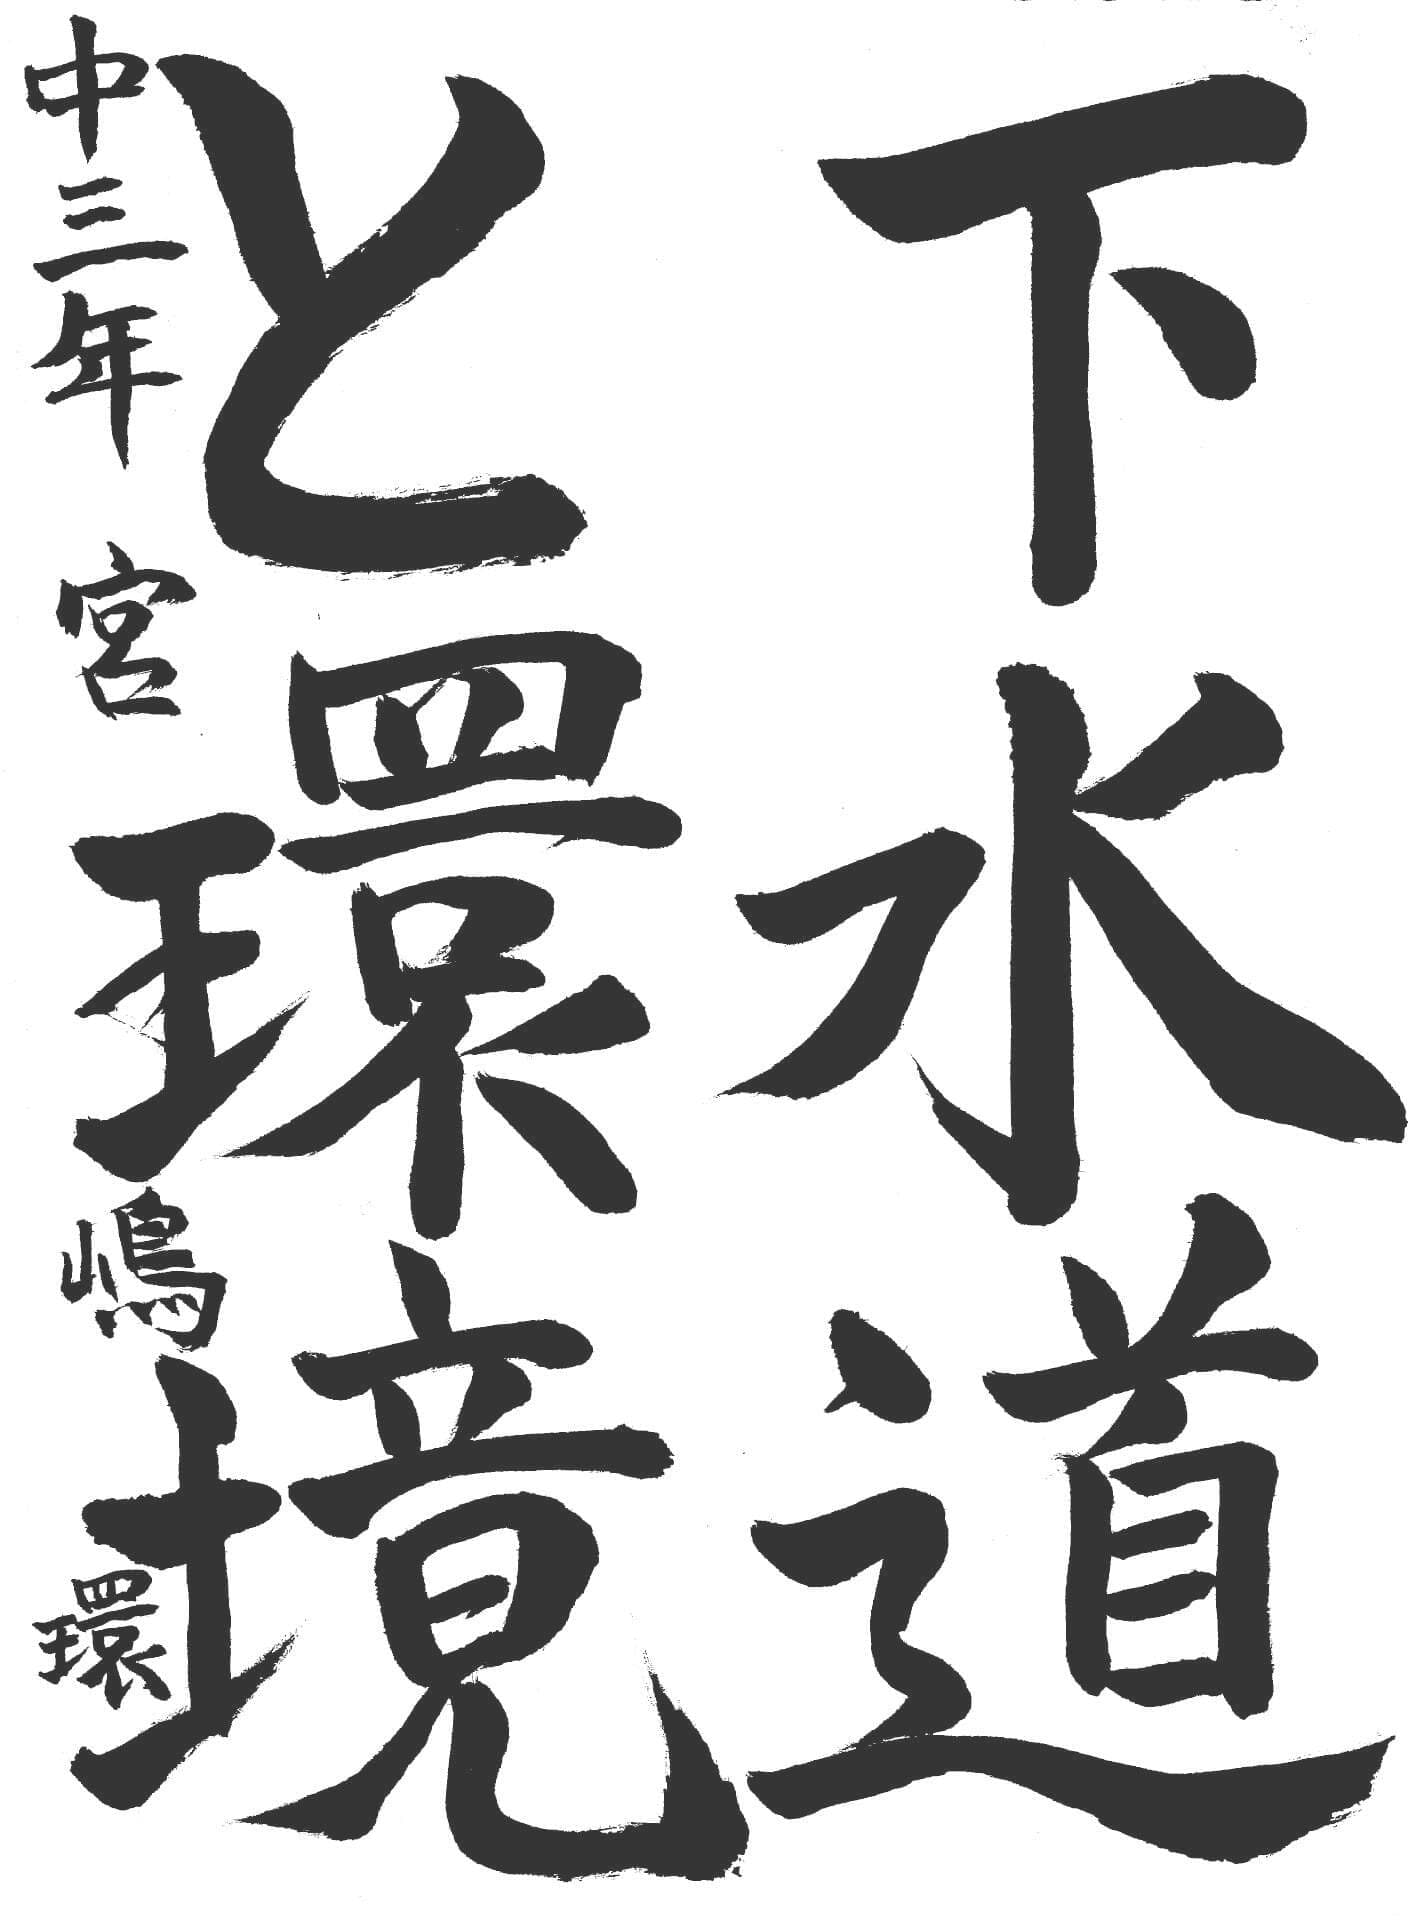 下水道
と環境
中三年 宮嶋環